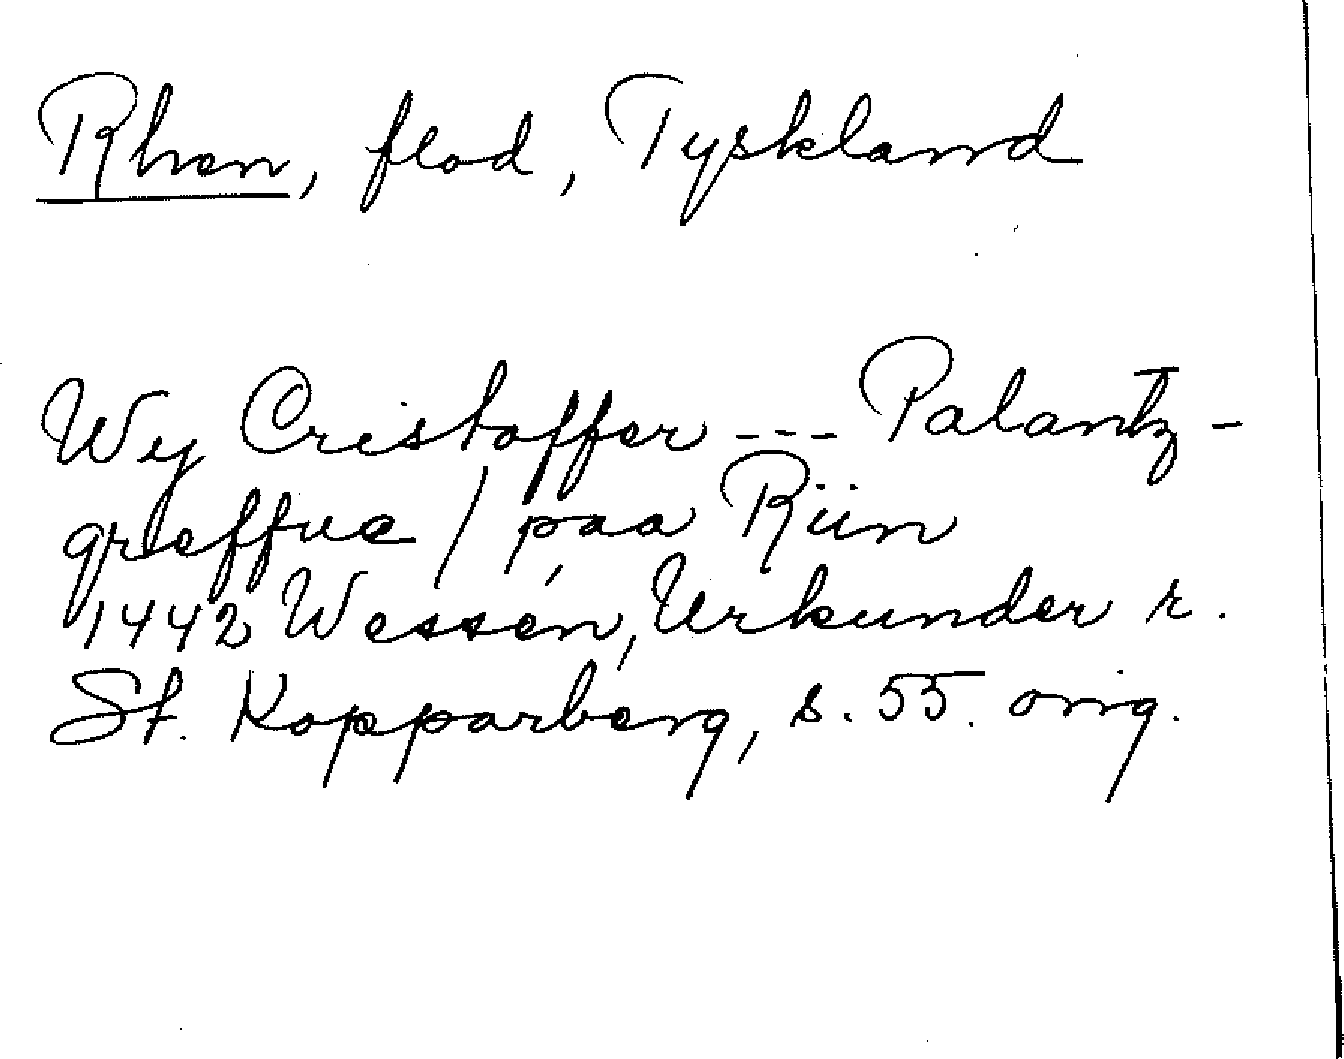 Rhen, flod, Tyskland
Wy Cristoffer --- Palantz-
greffue / paa Riin
1442 Wessén, Urkunder r.
St. Kopparberg, s. 55. orig.